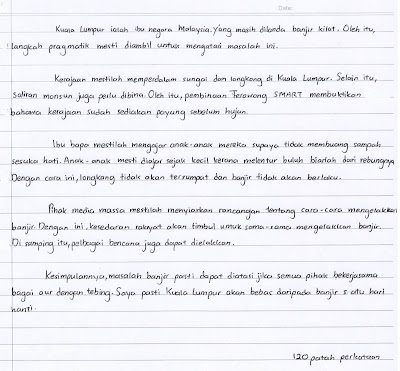 Date:
Kuala Lumpur ialah ibu negara Malaysia. Yang masih dilanda banjir kilat. Oleh itu,
langkah pragmatik mesti diambil untuk mengatasi masalah ini.
Kerajaan mestilah memperdalam sungai dan longkang di Kuala Lumpur. Selain itu,
saliran monsun juga perlu dibina. Oleh itu, pembinaan Terowong SMART membuktikan
bahawa kerajaan sudah sediakan payung sebelum hujan.
Ibu bapa mestilah mengajar anak-anak mereka supaya tidak membuang sampah
sesuka hati. Anak-anak mesti diajar sejak kecil kerana melentur buluh biarlah dari rebungnya.
Dengan cara ini, longkang tidak akan tersumpat dan banjir tidak akan berlaku.
Pihak media massa mestilah menyiarkan rancangan tentang cara-cara mengelakkan
banjir. Dengan ini, kesedaran rakyat akan timbul untuk sama-sama mengelakkan banjir.
Di samping itu, pelbagai bencana juga dapat dielakkan.
Kesimpulannya, masalah banjir pasti dapat diatasi jika semua pihak bekerjasama
bagai aur dengan tebing. Saya pasti Kuala Lumpur akan bebas daripada banjir satu hari
nanti.
120 patah perkataan